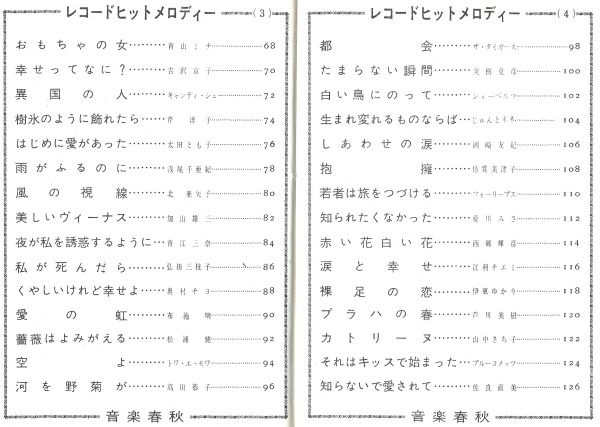 レコードヒットメロディー (3)
おもちゃの女………青山ミチ………68
幸せってなに？………吉沢京子………70
異国の人………キャンディ・シュー………72
樹氷のように飾れたら………芹洋子………74
はじめに愛があった………太田とも子………76
雨がふるのに………浅尾千亜紀………78
風の視線………北亜矢子………80
美しいヴィーナス………加山雄三………82
夜が私を誘惑するように………青江三奈………84
私が死んだら………弘田三枝子………86
くやしいけれど幸せよ………奥村チヨ………88
愛の虹………布施明………90
薔薇はよみがえる………松浦健………92
空よ………トワ・エ・モワ………94
河を野菊が………高田恭子………96
音楽春秋
レコードヒットメロディー (4)
都会………ザ・タイガース………98
たまらない瞬間………美樹克彦………100
白い鳥にのって………シューベルツ………102
生まれ変れるものならば………じゅんとネネ………104
しあわせの涙………岡崎友紀………106
抱擁………信貴美津子………108
若者は旅をつづける………フォーリーブス………110
知られたくなかった………愛川みさ………112
赤い花白い花………西郷輝彦………114
涙と幸せ………江利チエミ………116
裸足の恋………伊東ゆかり………118
プラハの春………芦川美樹………120
カトリーヌ………山中さち子………122
それはキッスで始まった………ブルーコメッツ………124
知らないで愛されて………佐良直美………126
音楽春秋